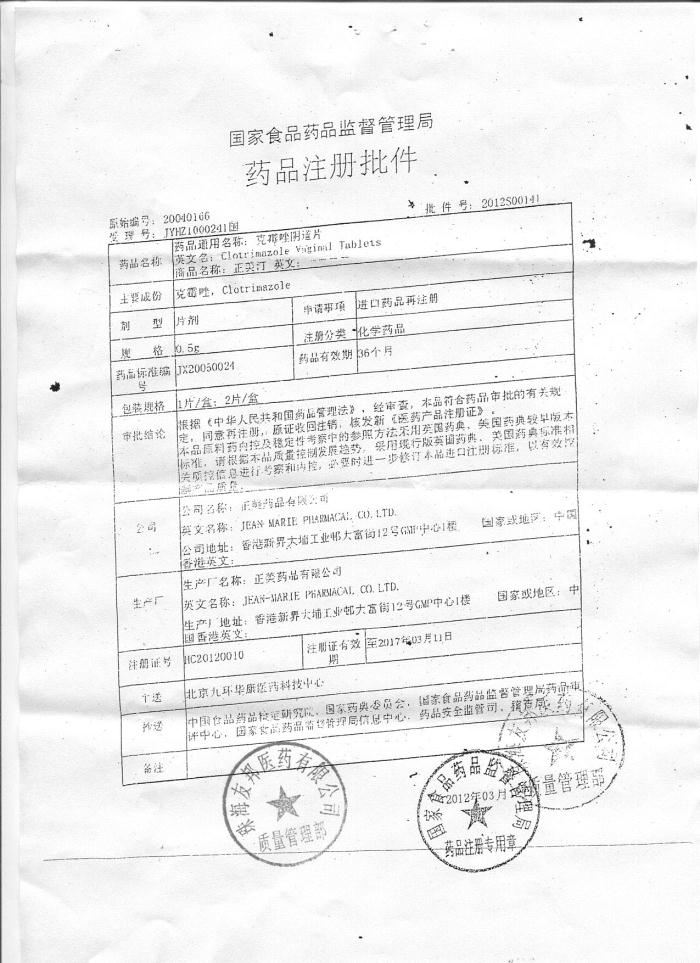 国家食品药品监督管理局
药品注册批件
原始编号: 20040166
受理号: JYHZ1000241国
批件号: 2012S00141
药品名称
药品通用名称: 克霉唑阴道片
英文名: Clotrimazole Vaginal Tablets
商品名称: 正美汀 英文:
主要成份
克霉唑, Clotrimazole
剂型
片剂
申请事项
进口药品再注册
规格
0.5g
注册分类
化学药品
药品标准编号
JX20050024
药品有效期
36个月
包装规格
1片/盒; 2片/盒
审批结论
根据《中华人民共和国药品管理法》, 经审查, 本品符合药品审批的有关规
定, 同意再注册, 原证收回注销, 核发新《医药产品注册证》。
本品原料药内控及稳定性考察中的参照方法采用英国药典、美国药典较早版本
标准, 请根据本品质量控制发展趋势, 采用现行版英国药典、美国药典标准相
关质控信息进行考察和内控, 必要时进一步修订本品进口注册标准, 以有效控
制产品质量。
公司
公司名称: 正美药品有限公司
英文名称: JEAN-MARIE PHARMACAL CO. LTD.
公司地址: 香港新界大埔工业邨大富街12号GMP中心1楼 国家或地区: 中国
香港英文:
生产厂
生产厂名称: 正美药品有限公司
英文名称: JEAN-MARIE PHARMACAL CO. LTD.
生产厂地址: 香港新界大埔工业邨大富街12号GMP中心1楼 国家或地区: 中
国香港英文:
注册证号
HC20120010
注册证有效期
至2017年03月11日
主送
北京九环华康医药科技中心
抄送
中国食品药品检定研究院、国家药典委员会、国家食品药品监督管理局药品审
评中心、国家食品药品监督管理局信息中心、药品安全监管司、稽查局
备注
2012年03月
珠海友邦医药有限公司
质量管理部
国家食品药品监督管理局
药品注册专用章
珠海友邦医药有限公司
质量管理部